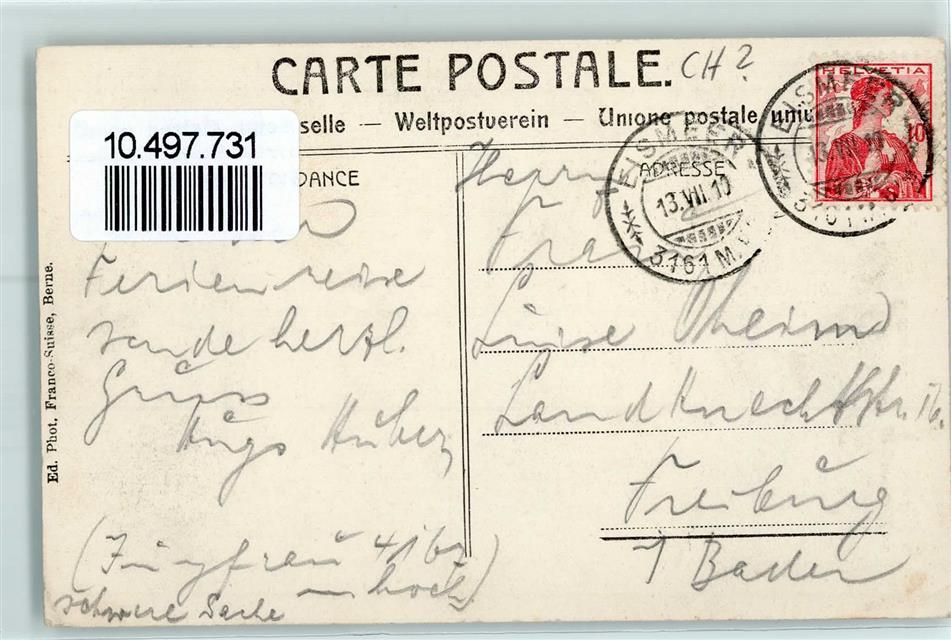 CARTE POSTALE. CH?
HELVETIA
10
selle — Weltpostverein — Unione postale univ
10.497.731
DANCE
ADRESSE
EISMEER
13.VII.10
3161 M.
EISMEER
13.VII.10
3161 M.
Ferienreise
sende herzl.
Gruss
Hugo Huber
(Jungfrau 4167
m hoch)
schwere Sache
Frau
Luise
Landknechtstr. 16.
Freiburg
i/ Baden
Ed. Phot. Franco-Suisse, Berne.